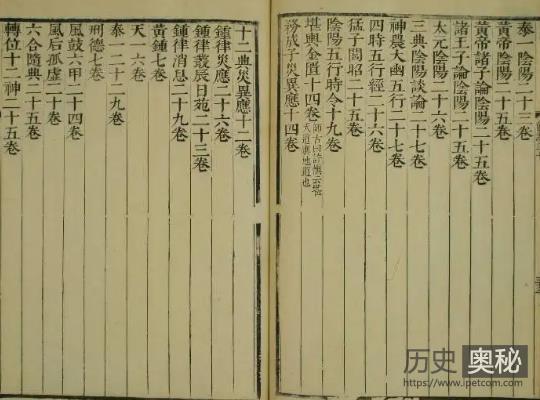 泰一陰陽二十三卷
黃帝陰陽二十五卷
黃帝諸子論陰陽二十五卷
諸王子論陰陽二十五卷
太元陰陽二十六卷
三典陰陽談論二十七卷
神農大幽五行二十七卷
四時五行經二十六卷
猛子閭昭二十五卷
陰陽五行時令十九卷
堪輿金匱十四卷 師古曰許慎云堪
天道輿地道也
務成子災異應十四卷
十二典災異應十二卷
鍾律災應二十六卷
鍾律叢辰日苑二十三卷
鍾律消息二十九卷
黃鍾七卷
天一六卷
泰一二十九卷
刑德七卷
風鼓六甲二十四卷
風后孤虛二十卷
六合隨典二十五卷
轉位十二神二十五卷
历史奥秘
https://www.ipetcom.com